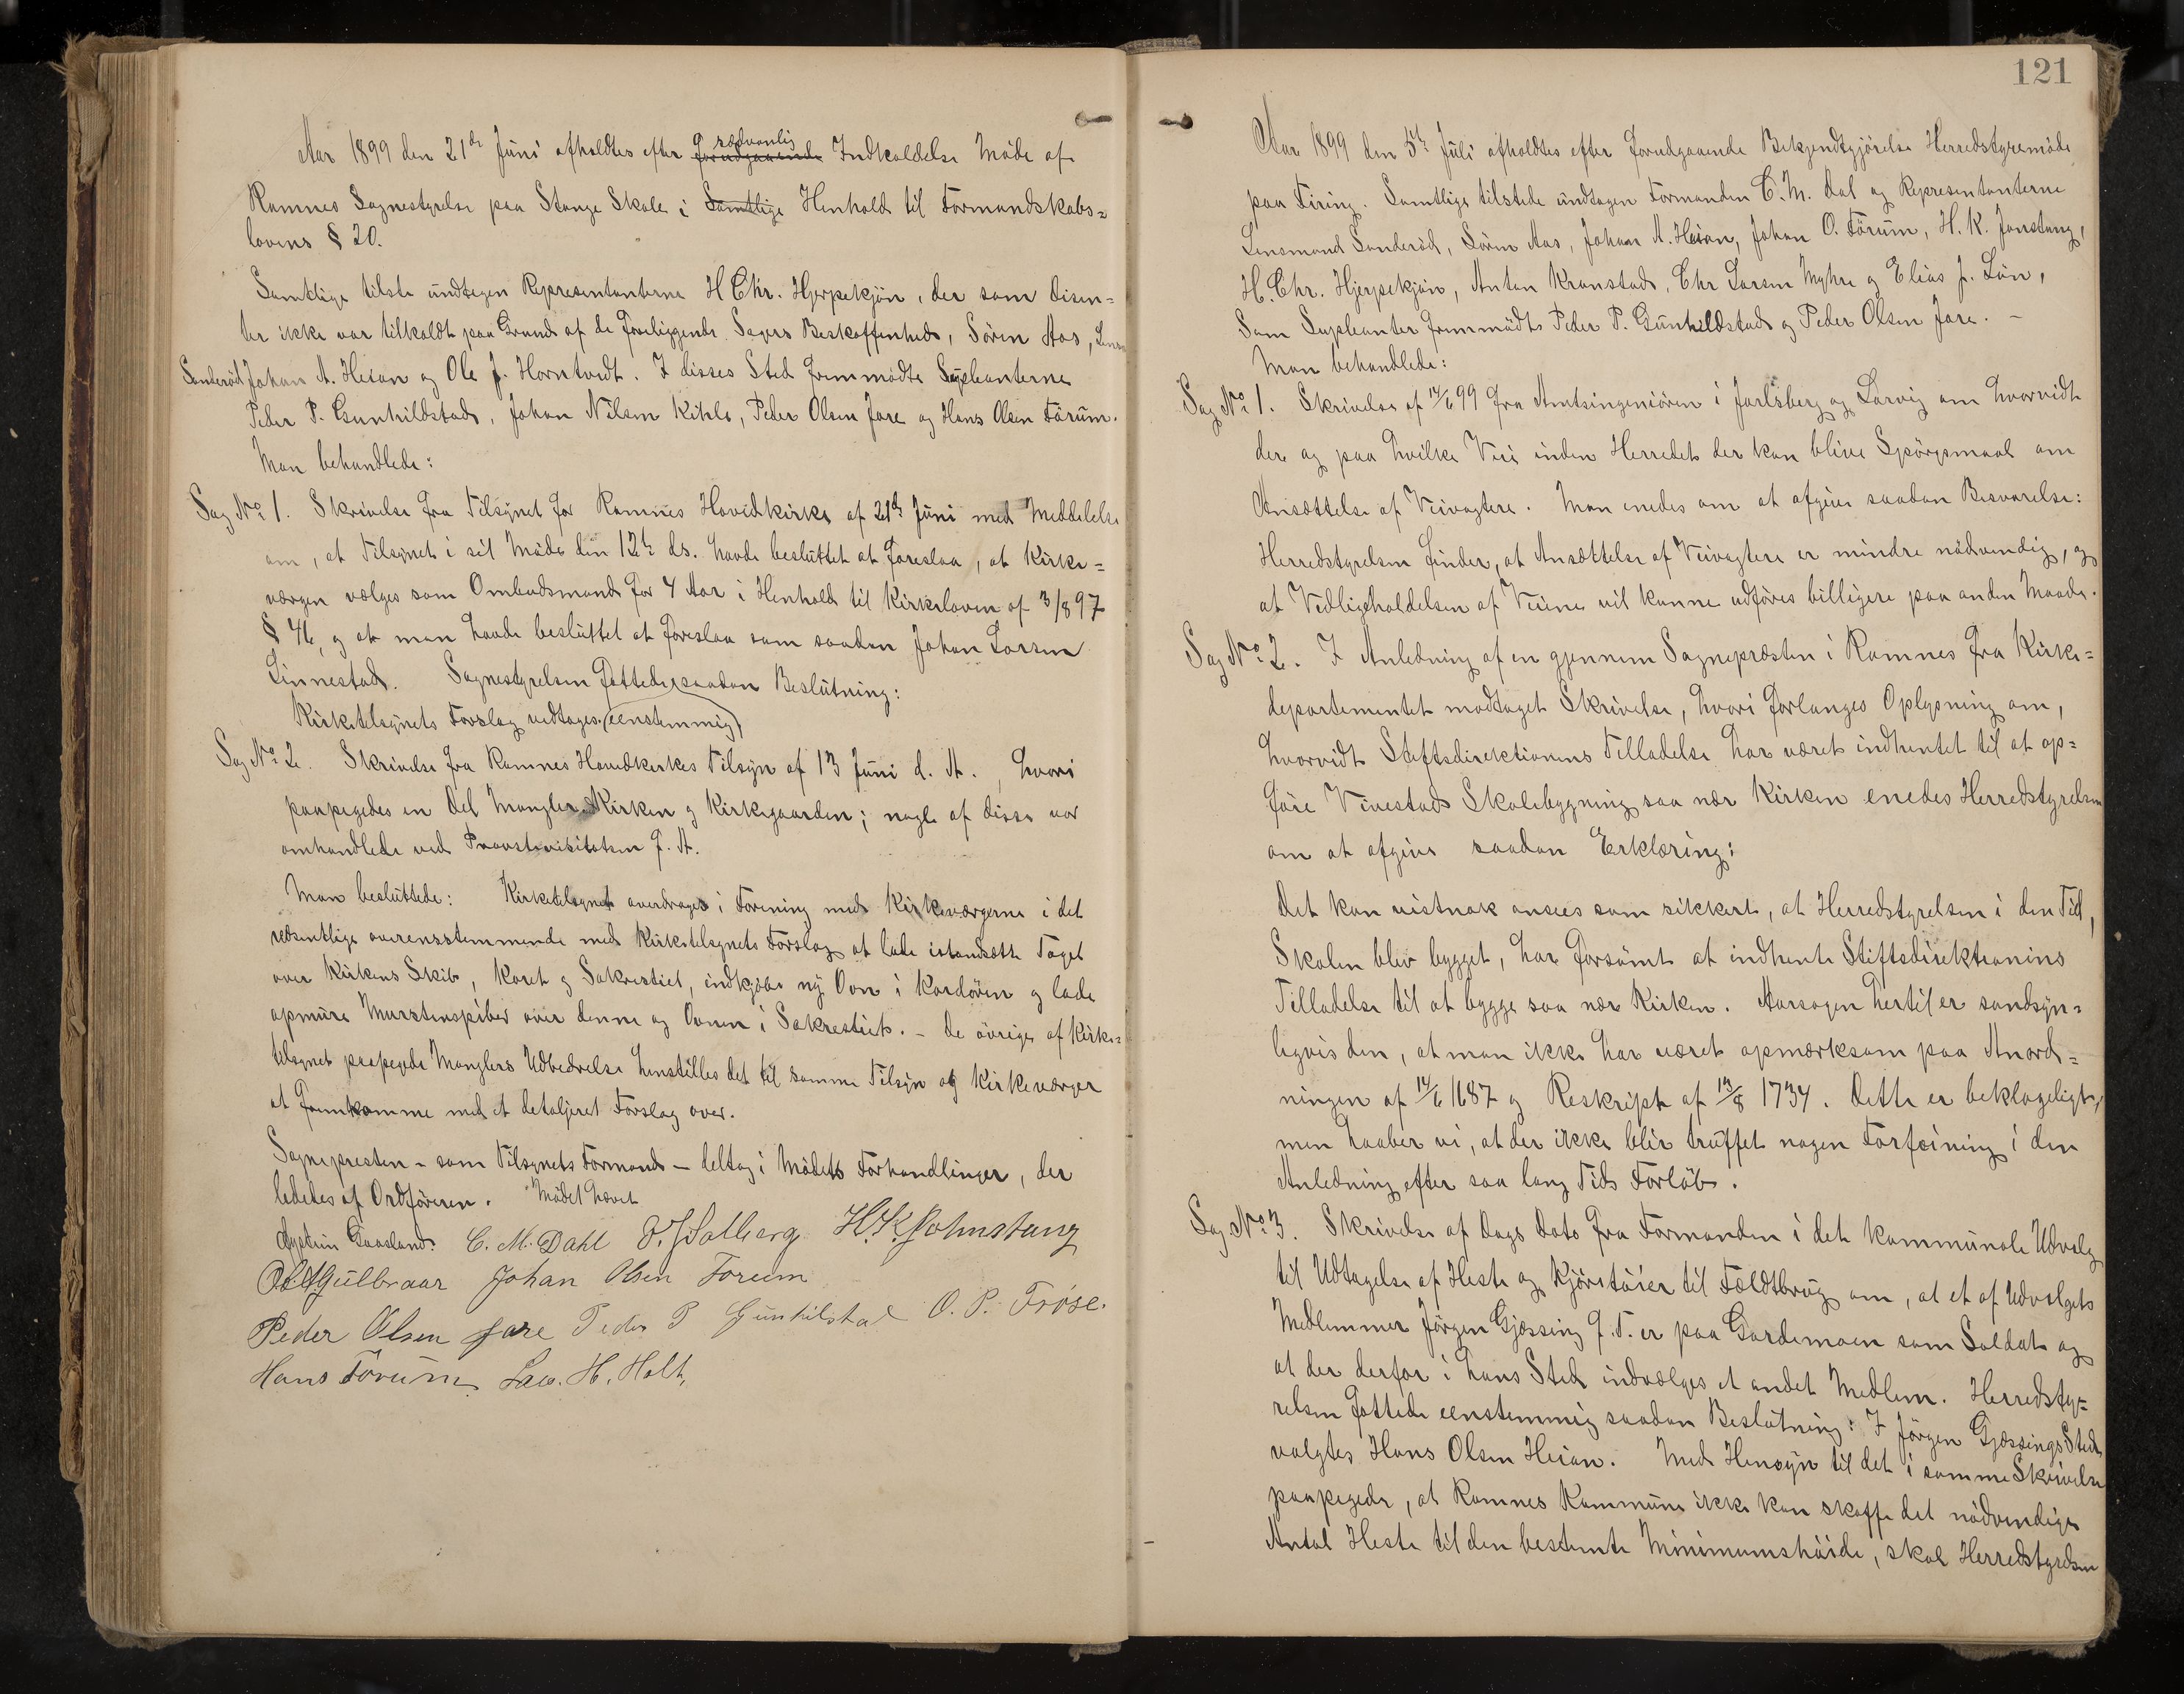 Aar 1899 den 21de Juni afholdtes efter forudgaaende sædvanlig Indkaldelse Möde af
Ramnes Sognestyrelse paa Stange Skole i Samtlige Henhold til Formandskabs=
lovens § 20.
Samtlige tilste undtagen Repræsentanterne H Chr. Hjerpekjön, der som Disen=
ter ikke var tilkaldt paa Grund af de foreliggende Sagers Beskaffenhed, Sören Aas, Lensm
Sanderöd Johan A. Heian og Ole J. Horntvedt. I disses Sted fremmödte Supleanterne
Peder P. Gunhildstad, Johan Nilsen Kihle, Peder Olsen Jare og Hans Olsen Förum.
Man behandlede:
Sag No 1. Skrivelse fra Tilsynet for Ramnes Hovedkirke af 21de Juni med Meddelelse
om, at Tilsynet i sit Möde den 12te ds. havde besluttet at foreslaa, at Kirke=
værgen vælges som Ombudsmand for 4 Aar i Henhold til Kirkeloven af 3/8 97
§ 46, og at man havde besluttet at foreslaa som saadan Johan Larsen
Linnestad. Sognestyrelsen fattede saadan Beslutning:
Kirketilsynets Forslag vedtages (eenstemmig)
Sag No 2. Skrivelse fra Ramnes Hovedkirkes Tilsyn af 13 Juni d. A., hvori
paapegedes en Del Mangler Kirken og Kirkegaarden; nogle af disse var
omhandlede ved Provstevisitatsen f. A.
Man besluttede: Kirketilsynet overdrages i Forening med Kirkeværgerne i det
væsentlige overensstemmende med Kirketilsynets Forslag at lade istandsætte Taget
over Kirkens Skib, Koret og Sakrestiet, indkjöbe ny Ovn i Kordören og lade
opmure Murstenspiber over denne og Ovnen i Sakrestiet. – De övrige af Kirke=
tilsynet paapegede Manglers Udbedrelse henstilles det til samme Tilsyn og Kirkeværger
at fremkomme med et detaljeret Forslag over.
Sognepresten – som Tilsynets Formand – deltog i Mödets Forhandlinger, der
lededes af Ordföreren. Mödet hævet
Aystein Gaasland. C. M. Dahl O. J. Solberg H. K. Johnstang
Gulbraar Johan Olsen Forum
Peder Olsen Jare Peder P Gunhilstad O. P. Fröse.
Hans Förum Law. H. Holt,
121
Aar 1899 den 5te Juli afholdtes efter forudgaaende Bekjendtgjörelse Herredstyremöde
paa Firing. Samtlige tilstede undtagen Formanden C. M. Dal og Representanterne
Lensmand Sanderöd, Sören Aas, Johan A. Heian, Johan O. Förum, H. K. Jonstang,
H. Chr. Hjerpekjön, Anton Kronstad, Chr Larsen Myhre og Elias J. Lön,
Som Supleanter fremmödte Peder P. Gunhildstad og Peder Olsen Jare. –
Man behandlede:
Sag No 1. Skrivelse af 14/6 99 fra Amtsingeniören i Jarlsberg og Larvig om hvorvidt
der og paa hvilke Veie inden Herredet der kan blive Spörgsmaal om
Ansættelse af Veivogtere. Man enedes om at afgive saadan Besvarelse:
Herredstyrelsen finder, at Ansættelse af Veivogtere er mindre nödvendig, og
at Vedligeholdelsen af Veiene vil kunne udföres billigere paa anden Maade.
Sag No 2. I Anledning af en gjennem Sognepræsten i Ramnes fra Kirke=
departementet modtaget Skrivelse, hvori forlanges Oplysning om,
hvorvidt Stiftsdirektionens Tilladelse har været indhentet til at op=
före Vivestad Skolebygning saa nær Kirken enedes Herredstyrelsen
om at afgive saadan Erklæring:
Det kan vistnok ansees som sikkert, at Herredstyrelsen i den Tid,
Skolen blev bygget, har forsömt at indhente Stiftsdirektionens
Tilladelse til at bygge saa nær Kirken. Aarsagen hertil er sandsyn=
ligvis den, at man ikke har været opmærksom paa Anord=
ningen af 14/6 1687 og Reskript af 13/8 1734. Dette er beklageligt,
men haaber vi, at der ikke blir truffet nogen Forföining i den
Anledning efter saa lang Tids Forlöb.
Sag No 3. Skrivelse af Dags Dato fra Formanden i det kommunale Udvalg
til Udtagelse af Heste og Kjöretöier til Fældtbrug om, at et af Udvalgets
Medlemmer Jörgen Gjæssing f. T. er paa Gardemoen som Soldat og
at der derfor i hans Sted indvælges et andet Medlem. Herredsty=
relsen fattede eenstemmig saadan Beslutning: I Jörgen Gjæssings Sted
valgtes Hans Olsen Heian. Med Hensyn til det i samme Skrivelse
paapegede, at Ramnes Kommune ikke kan skaffe det nödvendige
Antal Heste til den bestemte Minimumshöide, skal Herredstyrelsen